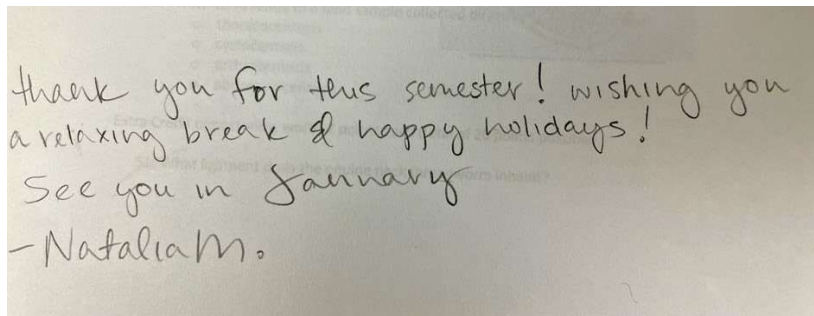 thank you for thus semester! wishing you
a relaxing break & happy holidays!
See you in January
-Natalia M.